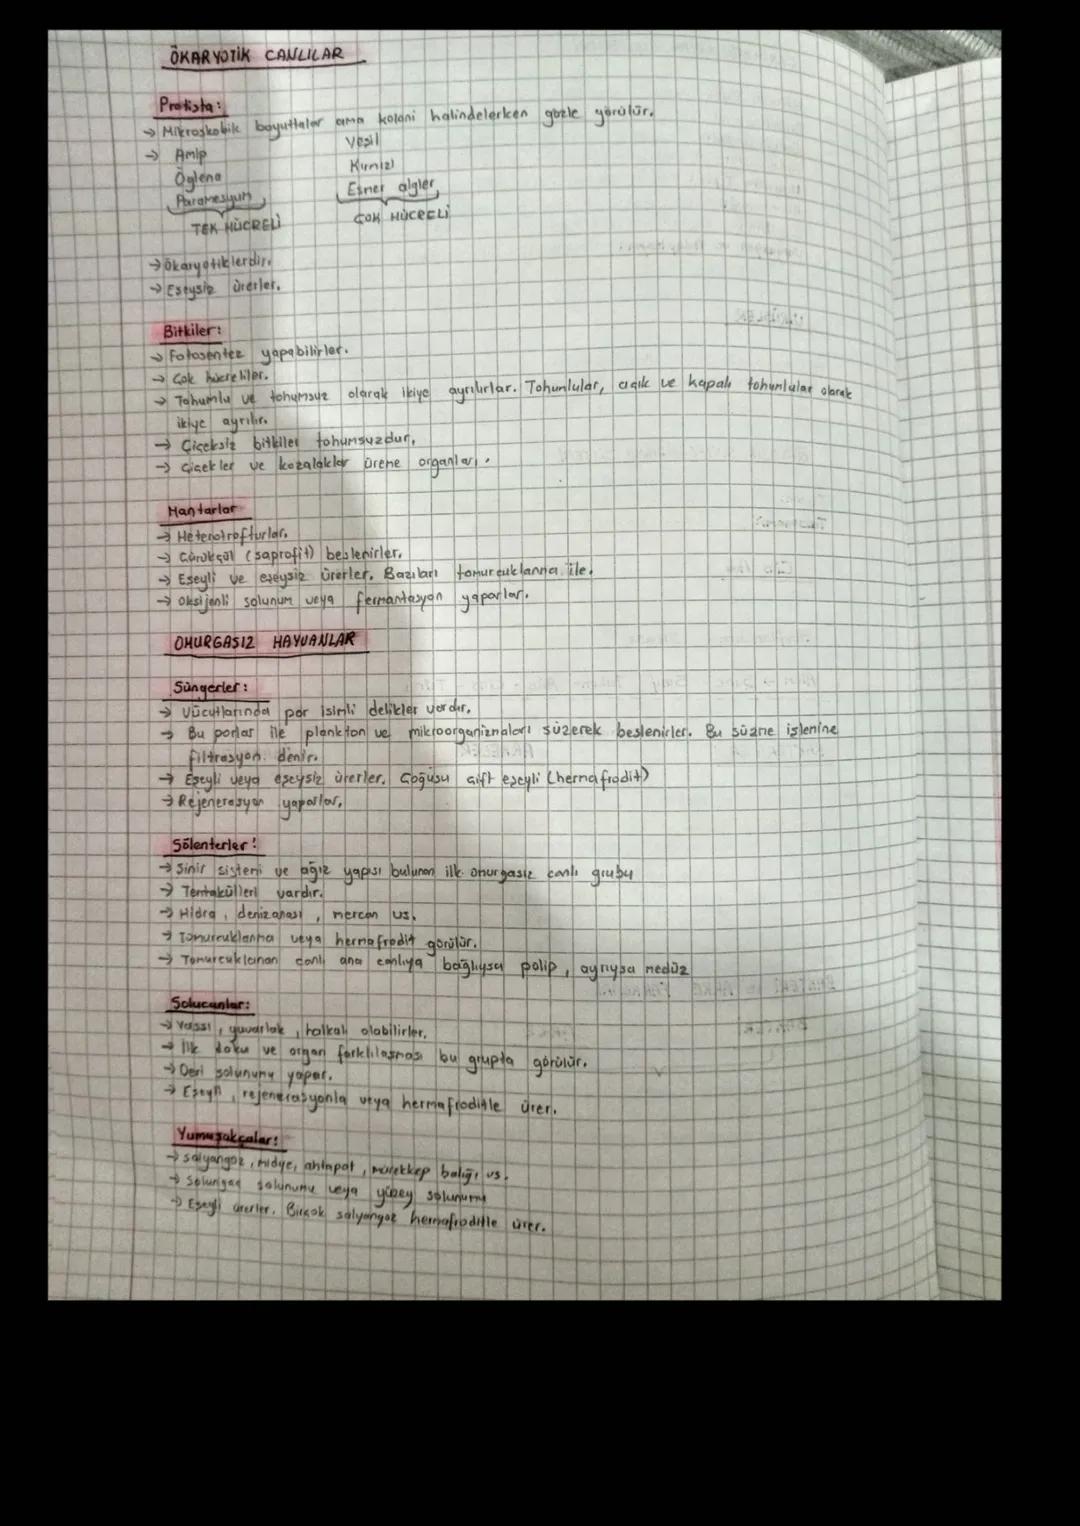 ÖKARYOTİK CANLILAR
Protista:
→ Mikroskobik boyuttalar ama koloni halindelerken gözle görülür.
→ Amip Yeşil
Öglena Kırmızı
Paramesyum Esmer algler
TEK HÜCRELİ ÇOK HÜCRELİ
→ Ökaryotiklerdir.
→ Eşeysiz ürerler.
Bitkiler:
→ Fotosentez yapabilirler.
→ Çok hücreliler.
→ Tohumlu ve tohumsuz olarak ikiye ayrılırlar. Tohumlular, açık ve kapalı tohumlular olarak
ikiye ayrılır.
→ Çiçeksiz bitkiler tohumsuzdur.
→ Çiçekler ve kozalaklar üreme organları.
Mantarlar
→ Heterotrofturlar.
→ Çürükçül (saprofit) beslenirler.
→ Eşeyli ve eşeysiz ürerler. Bazıları tomurcuklanma ile.
→ Oksijenli solunum veya fermantasyon yaparlar.
OMURGASIZ HAYVANLAR
Süngerler:
→ Vücutlarında por isimli delikler vardır.
→ Bu porlar ile plankton ve mikroorganizmaları süzerek beslenirler. Bu süzme işlemine
filtrasyon denir.
→ Eşeyli veya eşeysiz ürerler. Çoğusu çift eşeyli (hermafrodit)
→ Rejenerasyon yaparlar.
Sölenterler:
→ Sinir sistemi ve ağız yapısı bulunan ilk omurgasız canlı grubu
→ Tentakülleri vardır.
→ Hidra, denizanası, mercan vs.
→ Tomurcuklanma veya hermafrodit görülür.
→ Tomurcuklanan canlı ana canlıya bağlıysa polip, ayrıysa medüz
Solucanlar:
→ Yassı, yuvarlak, halkalı olabilirler.
→ İlk doku ve organ farklılaşması bu grupta görülür.
→ Deri solunumu yapar.
→ Eşeyli, rejenerasyonla veya hermafroditle ürer.
Yumuşakçalar:
→ Salyangoz, midye, ahtapot, mürekkep balığı vs.
→ Solungaç solunumu veya yüzey solunumu
→ Eşeyli ürerler. Birçok salyangoz hermafroditle ürer.